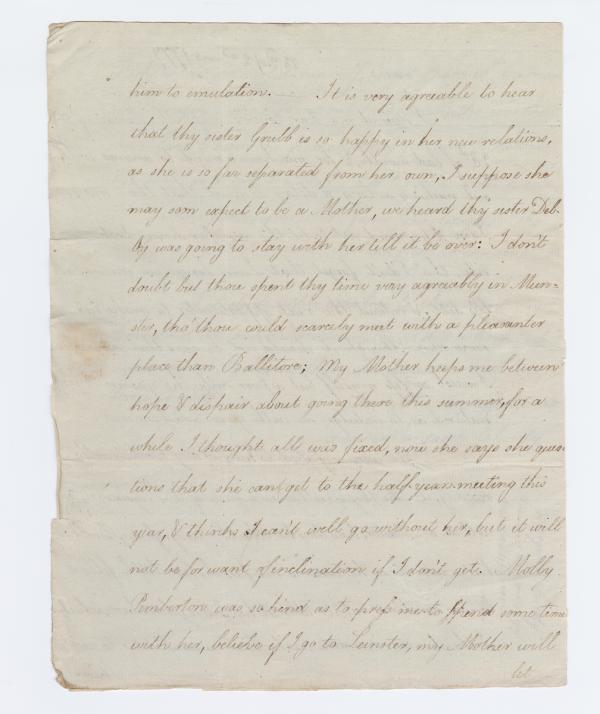 him to emulation. It is very agreable to hear
that thy sister Grubb is so happy in her new relations,
as she is so far separated from her own, I suppose she
may soon expect to be a Mother, we heard thy sister Deb-
by was going to stay with her till it be over: I don't
doubt but thou spent thy time very agreably in Mun-
ster, tho' thou could scarcely meet with a pleasanter
place than Ballitore; My Mother keeps me between
hope & dispair about going there this summer, for a
while I thought all was fixed, now she says she ques-
tions that she can get to the half year meeting this
year, & thinks I can't well go without her, but it will
not be for want of inclination if I don't get. Molly
Pimberton was so kind as to press me to spend some time
with her, believe if I go to Leinster, my Mother will
let